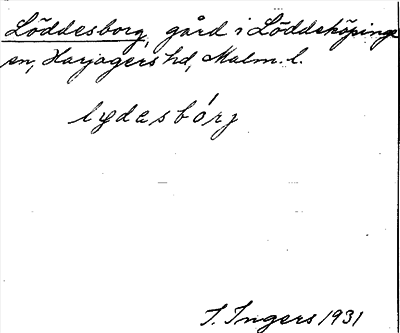 Löddesborg, gård i Löddeköpinge
sn, Harjagers hd, Malm. l.
lydesbórj
I. Ingers 1931